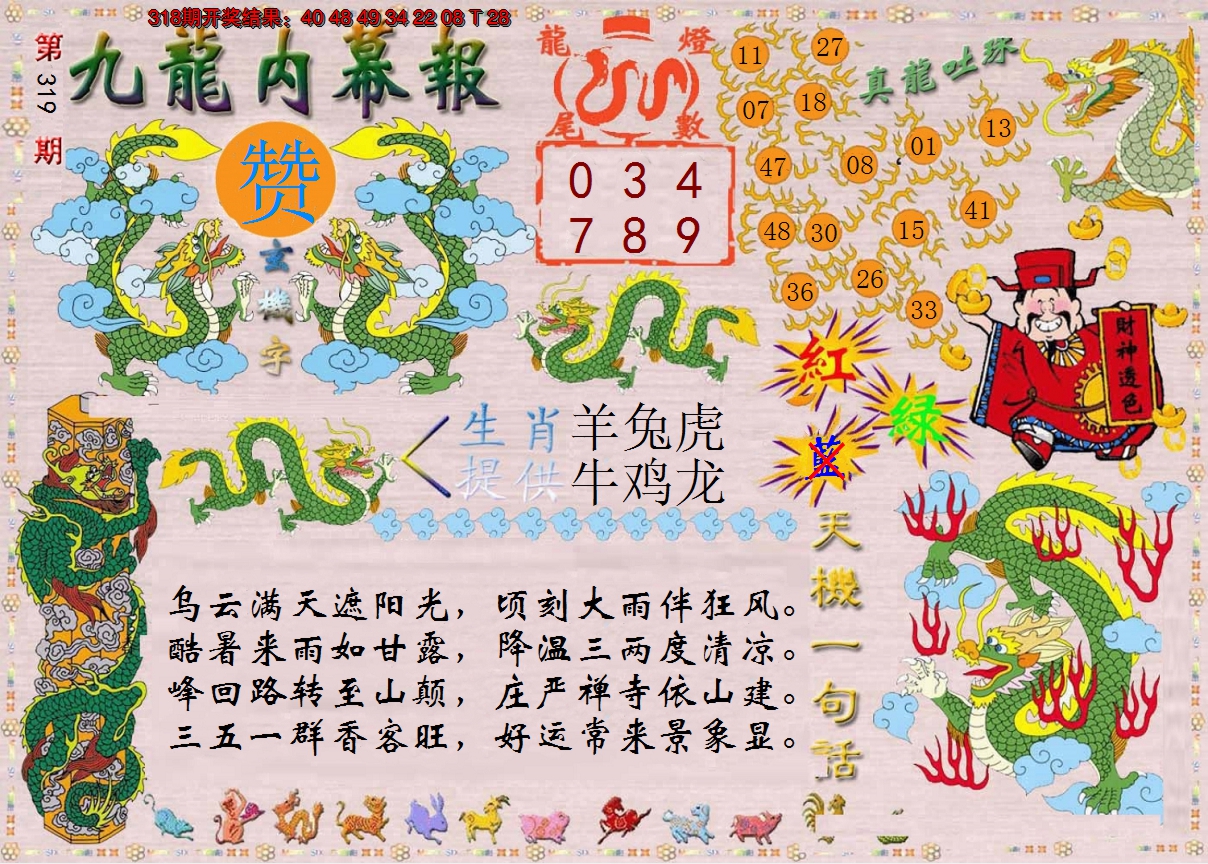 318期开奖结果：40 48 49 34 22 08 T 28
第319期
九龍内幕報
赞
玄機字
龍燈
尾數
0 3 4
7 8 9
真龍吐珠
11 27
07 18
47 08 01 13
48 30 15 41
36 26 33
紅
綠
藍
財神透色
生肖 羊兔虎
提供 牛鸡龙
乌云满天遮阳光，顷刻大雨伴狂风。
酷暑来雨如甘露，降温三两度清凉。
峰回路转至山颠，庄严禅寺依山建。
三五一群香客旺，好运常来景象显。
天機一句話